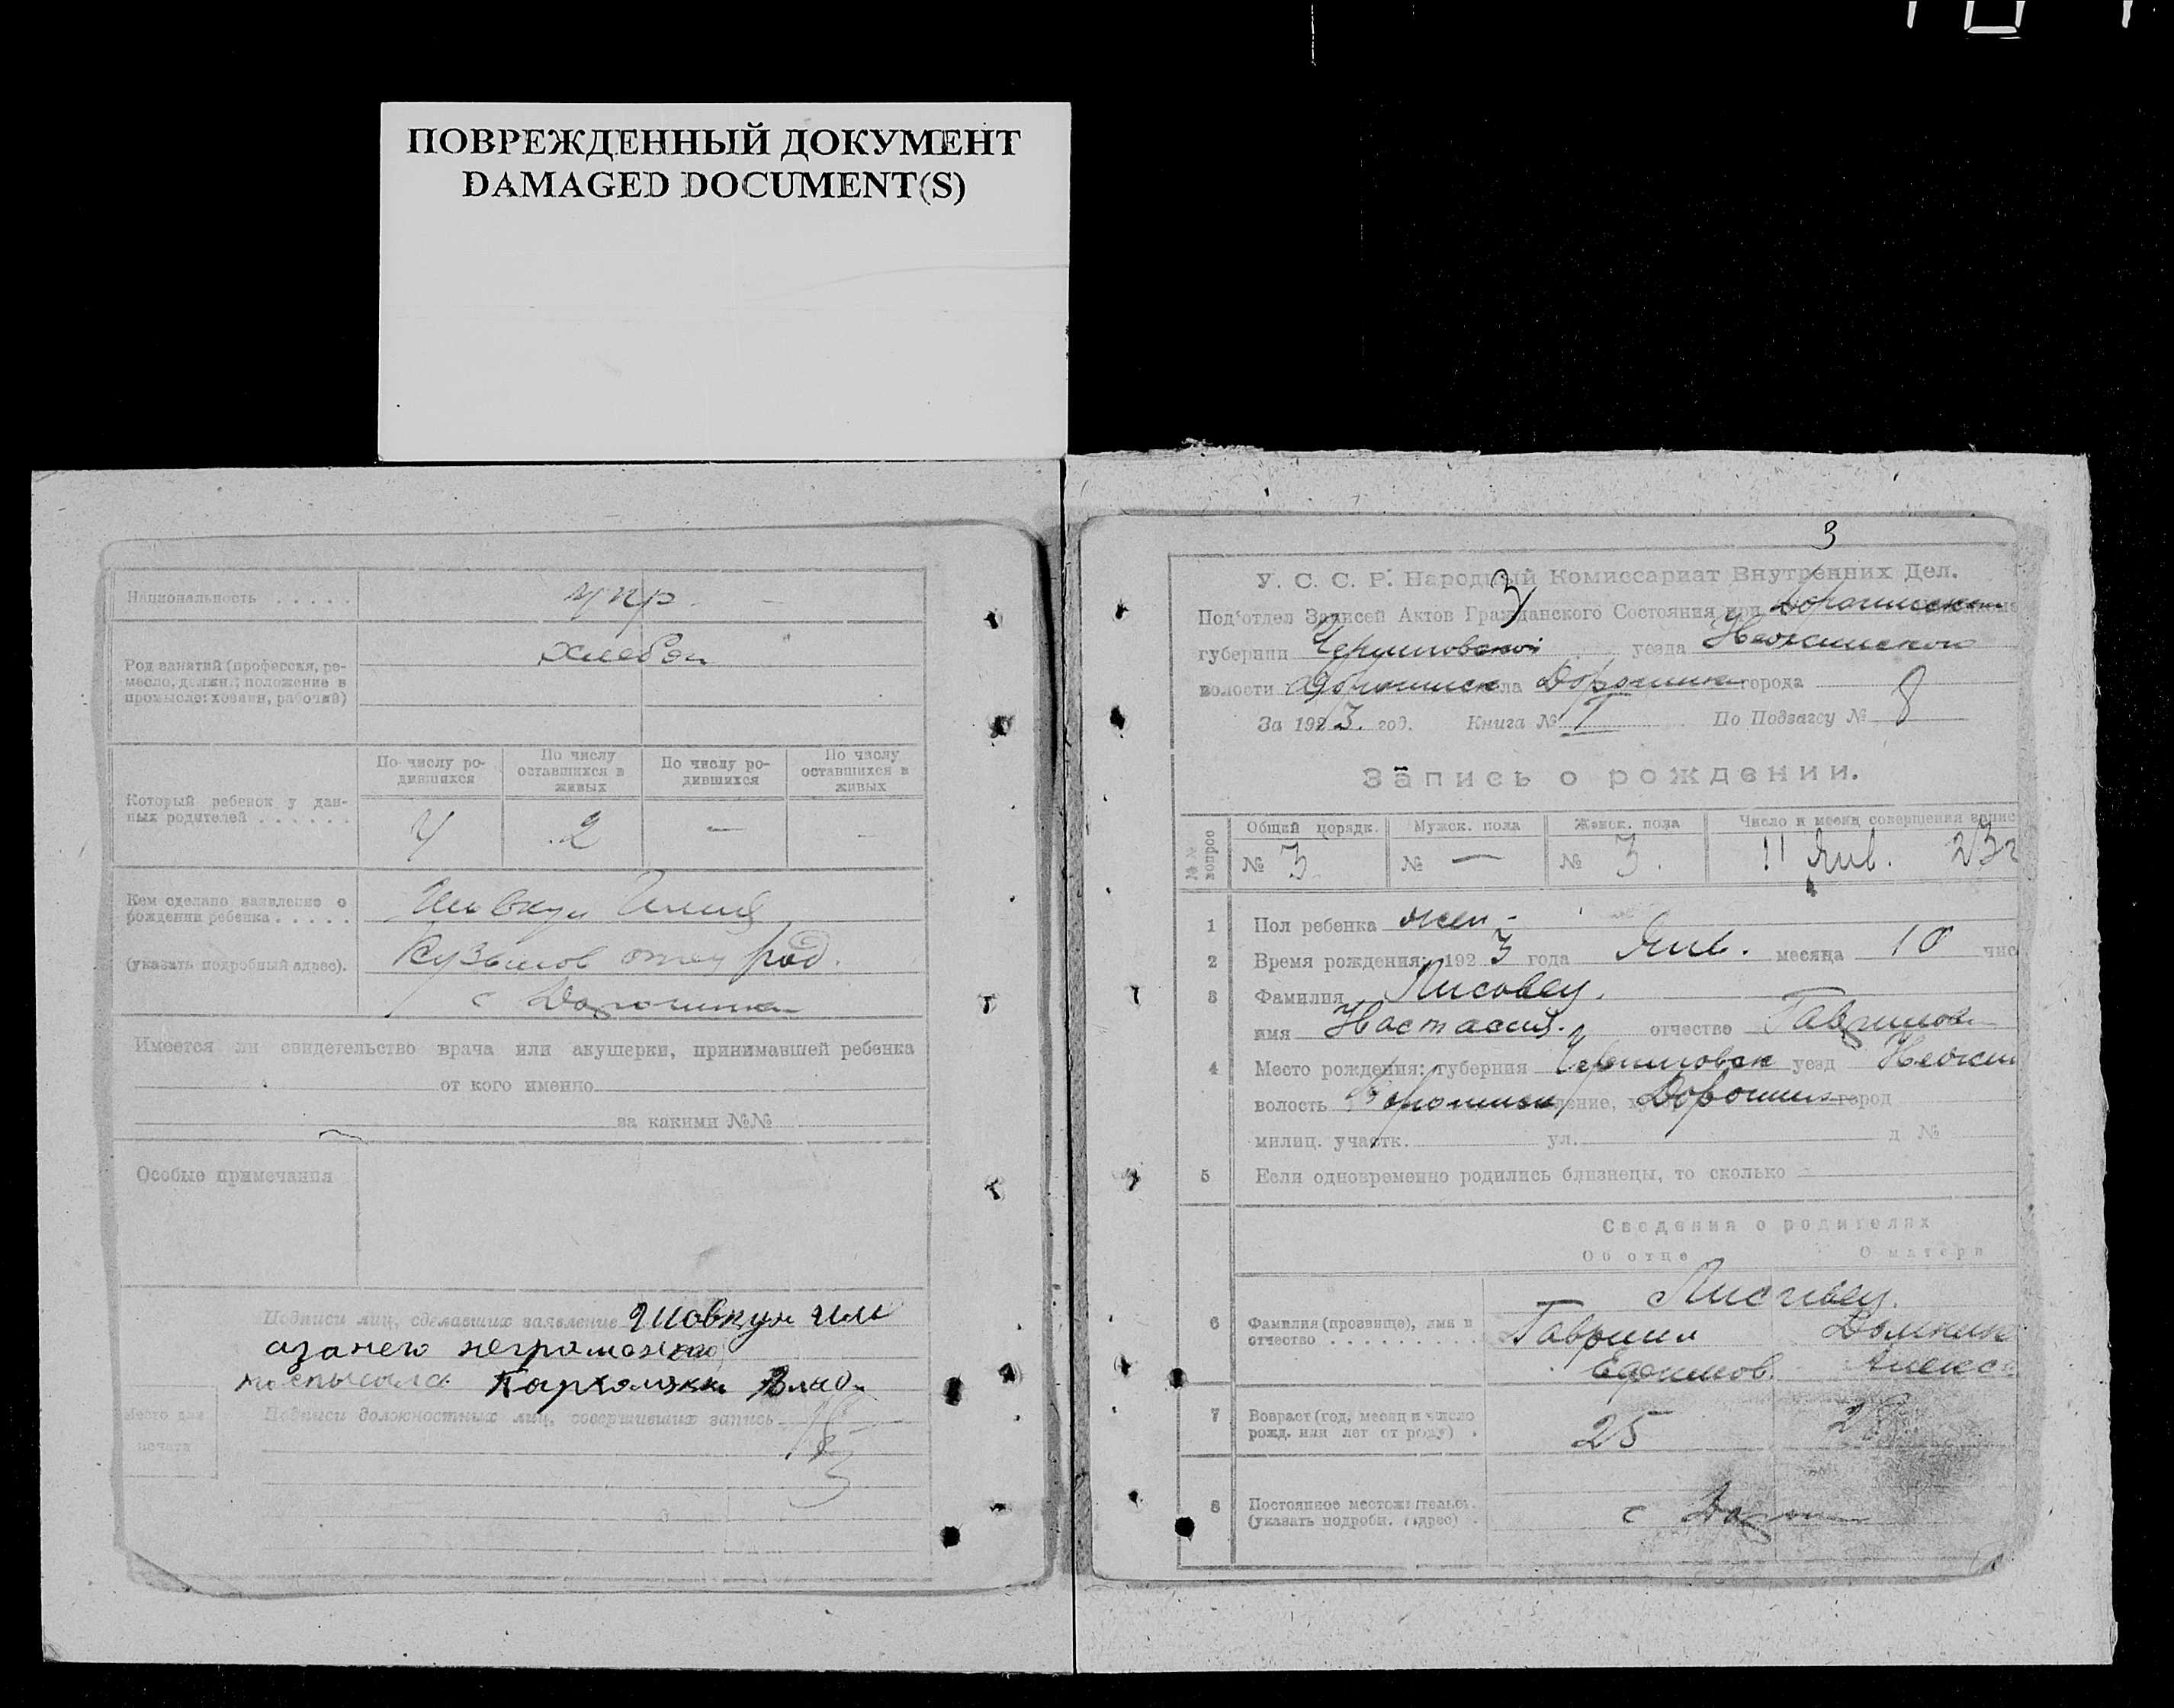 ПОВРЕЖДЕННЫЙ ДОКУМЕНТ
DAMAGED DOCUMENT(S)
Национальность . . . . . укр.
Род занятий (профессия, ре-
месло, должн.; положение в
промысле: хозяин, рабочий)
хлебоп
Который ребенок у дан-
ных родителей . . . . . .
По числу ро-
дившихся
По числу
оставшихся в
живых
По числу ро-
дившихся
По числу
оставшихся в
живых
4 2 — —
Кем сделано заявление о
рождении ребенка . . . . .
(указать подробный адрес).
Шовкун Илия
Кузьмов отец род.
с Дорогинка
Имеется ли свидетельство врача или акушерки, принимавшей ребенка
от кого именно
за какими №№
Особые примечания
Подписи лиц, сделавших заявление Шовкун Или
азанего неграмотного
Пархоменко Влад.
Подписи должностных лиц, совершивших запись
Место для
печати
3
У. С. С. Р. Народный Комиссариат Внутренних Дел.
3
Под'отдел Записей Актов Гражданского Состояния при Дорогинском
губернии Черниговской уезда Нежинского
волости Дорогинск села Дорогинка города
За 1923. год. Книга № 1 По Подзагсу № 8
Запись о рождении.
№№ вопрос
Общий порядк. Мужск. пола Женск. пола Число и месяц совершения запис
№ 3 № — № 3. 11 Янв. 23г
1 Пол ребенка жен-
2 Время рождения: 1923 года Янв. месяца 10 чис
3 Фамилия Лисовец.
имя Настасия. отчество Гаврилов
4 Место рождения: губерния Черниговск уезд Нежин
волость Дорогинск Дорогинка город
милиц. участк. ул. д №
5 Если одновременно родились близнецы, то сколько
Сведения о родителях
Об отце О матери
6 Фамилия (прозвище), имя и
отчество . . . . . . . . . .
Лисовец.
Гавриил Домники
Ефимов. Алекс
7 Возраст (год, месяц и число
рожд. или лет от роду) .
25
8 Постоянное местожительст.
(указать подробн. адрес) .
с Дорогинка